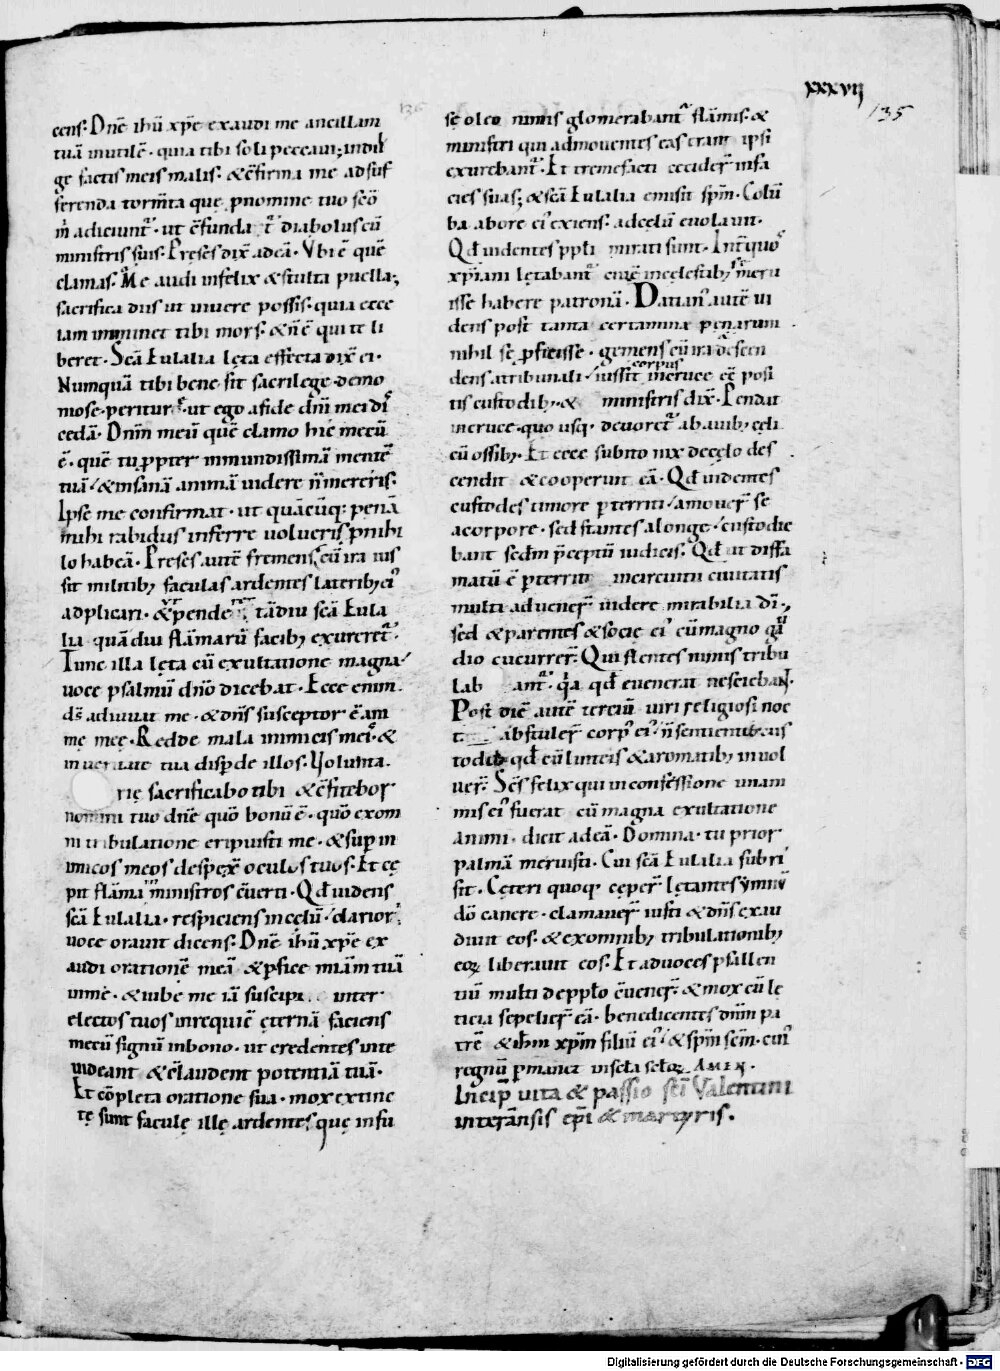 xxxvij
135
cens: Dn̄e ih̄u xp̄e exaudi me ancillam
tuā inutilē· quia tibi soli peccaui; indul
ge factis meis malis· & c̄firma me ad suf
ferenda torm̄ta que p nomine tuo
adiciunt᷑· ut c̄funda t᷑ diabolus cū
ministris suis· Preses dix̄ ad eā· Vbi ē quē
clamas· Me audi infelix & stulta puella;
sacrifica diis ut uiuere possis· quia ecce
iam imminet tibi mors· & n̄ ē qui te li
beret· Scā Eulalia lęta effecta dix̄ ei·
Numquā tibi bene sit sacrilege demo
niose periture· ut ego a fide dn̄i mei dis
cedā· Dnm̄ meū quē clamo hic mecū
ē· quē tu ppter inmundissimā mentē
tuā/ & insanā animā uidere n̄ mereris·
Ipse me confirmat· ut quācūq; penā
mihi rabidus inferre uolueris p nihi
lo habeā· Preses autē fremens cū ira ius
sit militib; faculas ardentes laterib; ei᷒
adplicari· & pende tādiu scā Eula
lia quādiu flāmarū facib; exureret᷑·
Tunc illa lęta cū exultatione magna/
uoce psalmū dn̄o dicebat· Ecce enim
d̄s adiuuat me· & dn̄s susceptor ē am
mę meę· Redde mala inimicis meis· &
in ueritate tua dispde illos· Volunta
rię sacrificabo tibi & c̄fitebor
nomini tuo dn̄e quō bonū ē· quō ex om
ni tribulatione eripuisti me· & sup in
imicos meos despex̄ oculos tuos· Et cę
pit flāma ministros c̄uerti· Qđ uidens
scā Eulalia· respiciens in cęlū/ clarior
uoce orauit dicens· Dn̄e ih̄u xp̄e ex
audi orationē meā & pfice miām tuā
in me· & iube me iā suscipi inter
electos tuos in requiē ęternā faciens
mecū signū in bono· ut credentes in te
uideant & c̄laudent potentiā tuā·
Et cōpleta oratione sua· mox extinc
tę sunt faculę illę ardentes quę infu
sę oleo nimis glomerabant᷑ flāmis· &
ministri qui admouentes eas erant ipsi
exurebant᷑· Et tremefacti cecider̄ in fa
cies suas; & scā Eulalia emisit sp̄m· Colū
ba ab ore ei᷒ exiens· ad cęlū euolauit·
Qđ uidentes ppl̄i mirati sunt· Int᷑ quos
xp̄iani lętabant᷑ cū in cęlestib; meru
isse habere patronā· Datian᷒ autē ui
dens post tanta certamina penarum
nihil se pfecisse· gemens cū ira descen
dens a tribunali/ iussit corpus in cruce eē posi
tis custodib;· & ministris dix̄· Pendat
in cruce· quo usq; deuoret᷑ ab auib; cęli
cū ossib;· Et ecce subito nix de cęlo des
cendit & cooperuit eā· Qđ uidentes
custodes timore pterriti/ amouer̄ se
a corpore· sed stantes a longe/ custodie
bant scdm̄ pceptū iudicis· Qđ ut diffa
matū ē pterriti in circuitu ciuitatis
multi aduener̄ uidere mirabilia d̄i·
sed & parentes & socię ei᷒ cū magno gau
dio cucurrer̄· Qui flentes nimis tribu
lab ant᷑· qa qđ euenerat nesciebant·
Post diē autē terciū uiri religiosi noc
abstuler̄ corp᷒ ei᷒/ n̄ sentientibus
todib qđ cū linteis & aromatib; inuol
uer̄· Scs̄ felix qui in confessione unani
mis ei᷒ fuerat cū magna exultatione
animi· dicit ad eā· Domina· tu prior
palmā meruisti· Cui scā Eulalia subri
sit· Ceteri quoq; ceper̄ lętantes ymnū
dō canere· clamauer̄ iusti & dn̄s exau
diuit eos· & ex omnib; tribulationib;
eoꝝ liberauit eos· Et ad uoces psallen
tiū multi de ppl̄o c̄uener̄· & mox cū lę
ticia sepelier̄ eā· benedicentes dn̄m pa
trē & ih̄m xp̄m filiū ei᷒/ & sp̄m scm̄· cui᷒
regnū pmanet in scl̄a scl̄oꝝ AMEN·
Incip̄ uita & passio sc̄i Valentini
interānsis ep̄i & martyris·
Digitalisierung gefördert durch die Deutsche Forschungsgemeinschaft - DFG